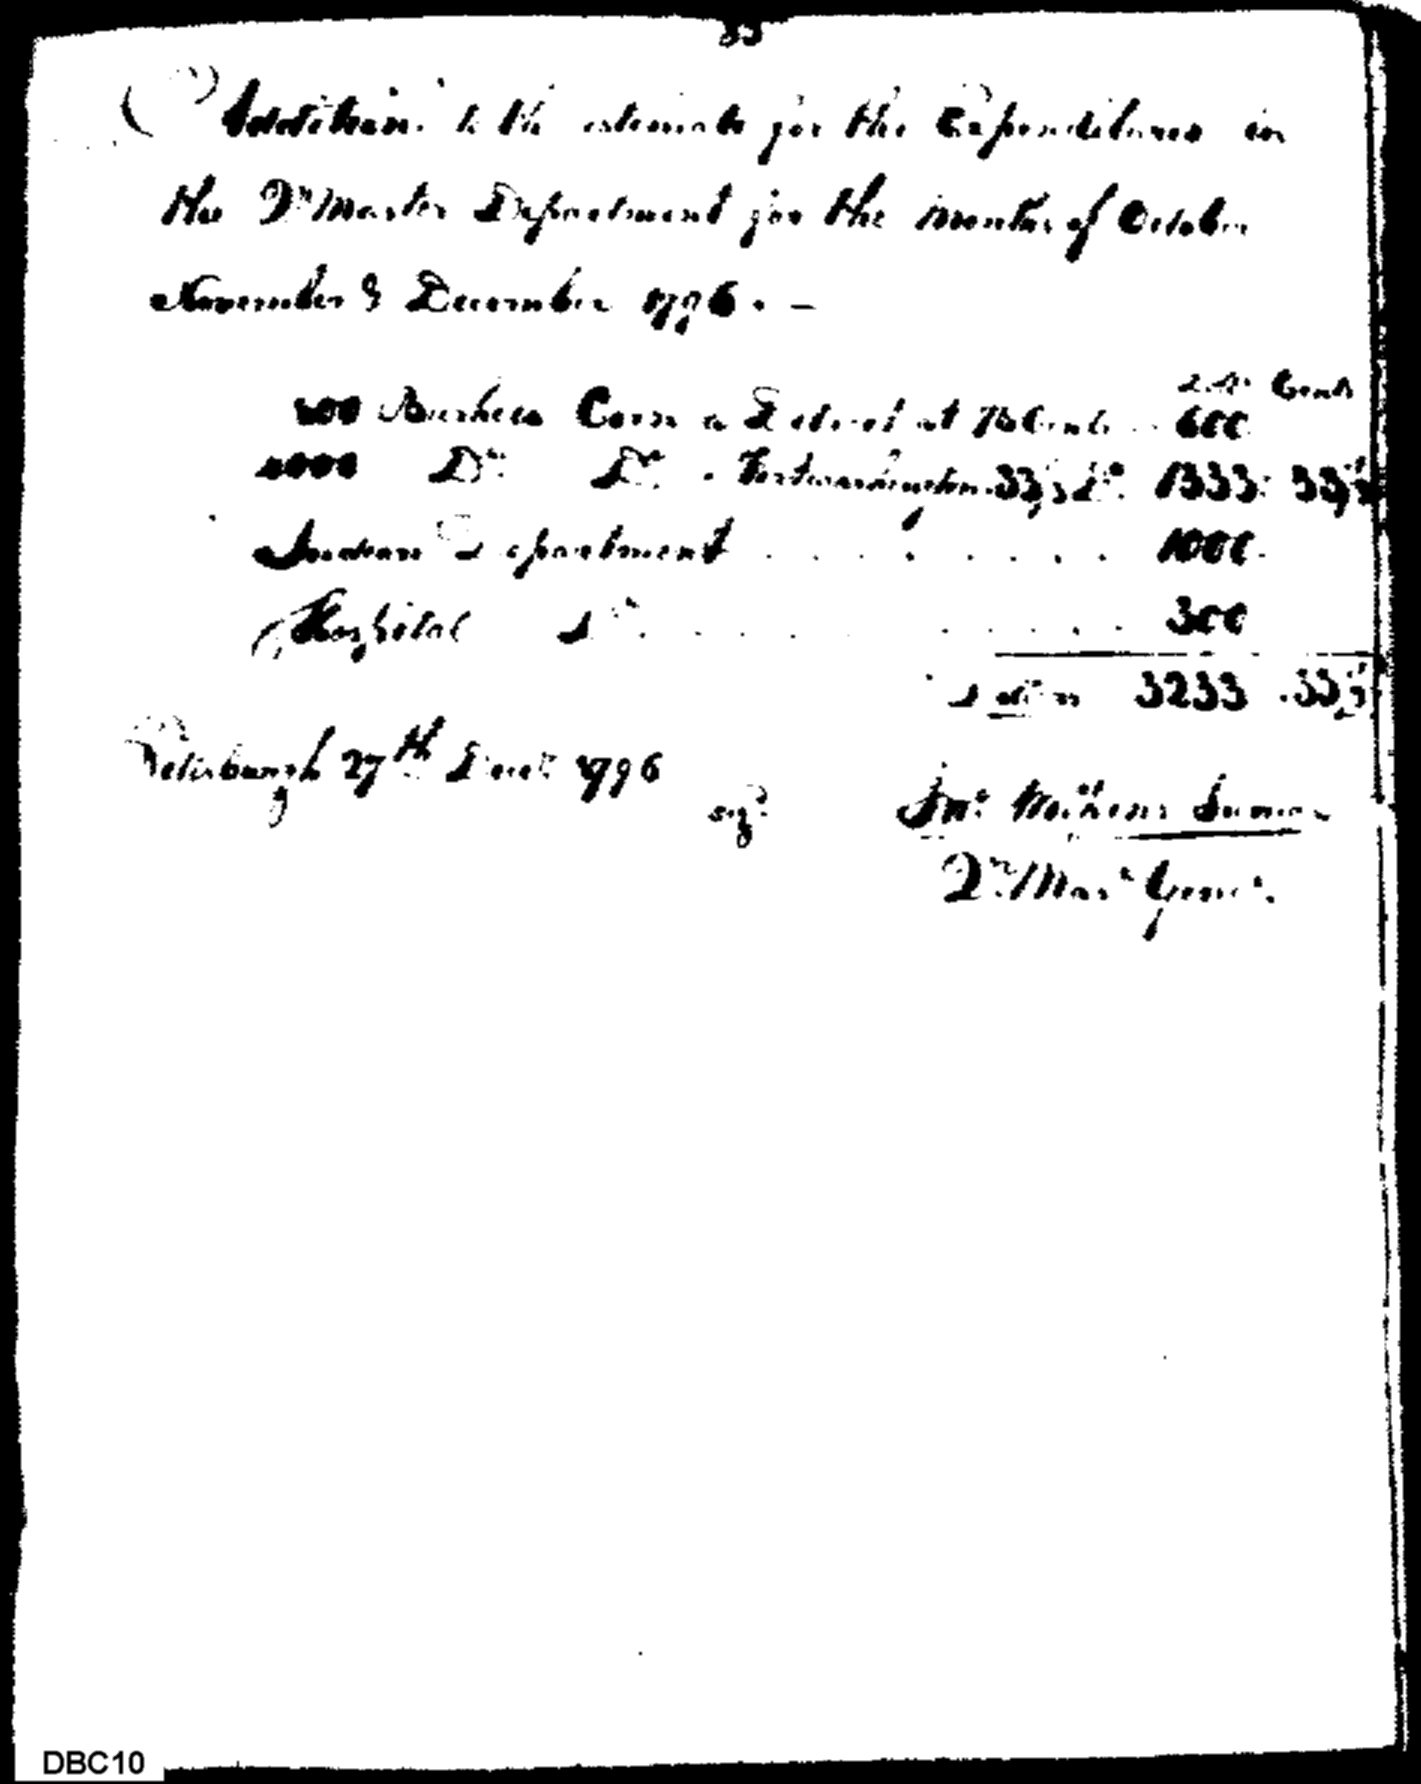 33
Addition to the estimate for the Expenditures in
the Qr Master Department for the Months of October
November & December 1796. –
Dolrs Cents
800 Bushels Corn a Detroit at 75 Cents .. 600
4000 Do. Do. . Fortwashington. 33⅓ Do. 1333: 33⅓
Indian Department . . . . . . . . 1000.
Hospital Do. . . . . . . . . . 300
Dollars 3233 .33⅓
Pittsburgh 27th Decr 1796
sigd. Jno Wilkins Junior
Qr. Mar Genel.
DBC10